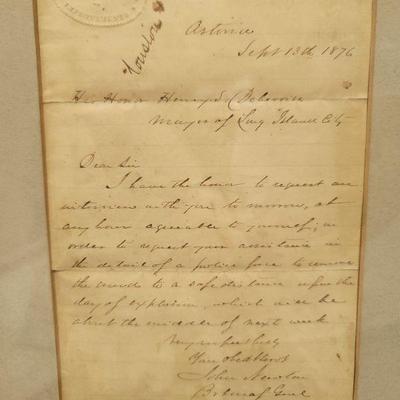 IMPROVEMENTS
Astoria
Sept 13th, 1876
His Honor Henry S. Debevoise
Mayor of Long Island City
Dear Sir
I have the honor to request an
interview with you to morrow, at
any hour agreeable to yourself, in
order to request your assistance in
the detail of a police force to remove
the crowd to a safe distance upon the
day of explosion, which will be
about the middle of next week
Very respectfully
Your obedt Servt
John Newton